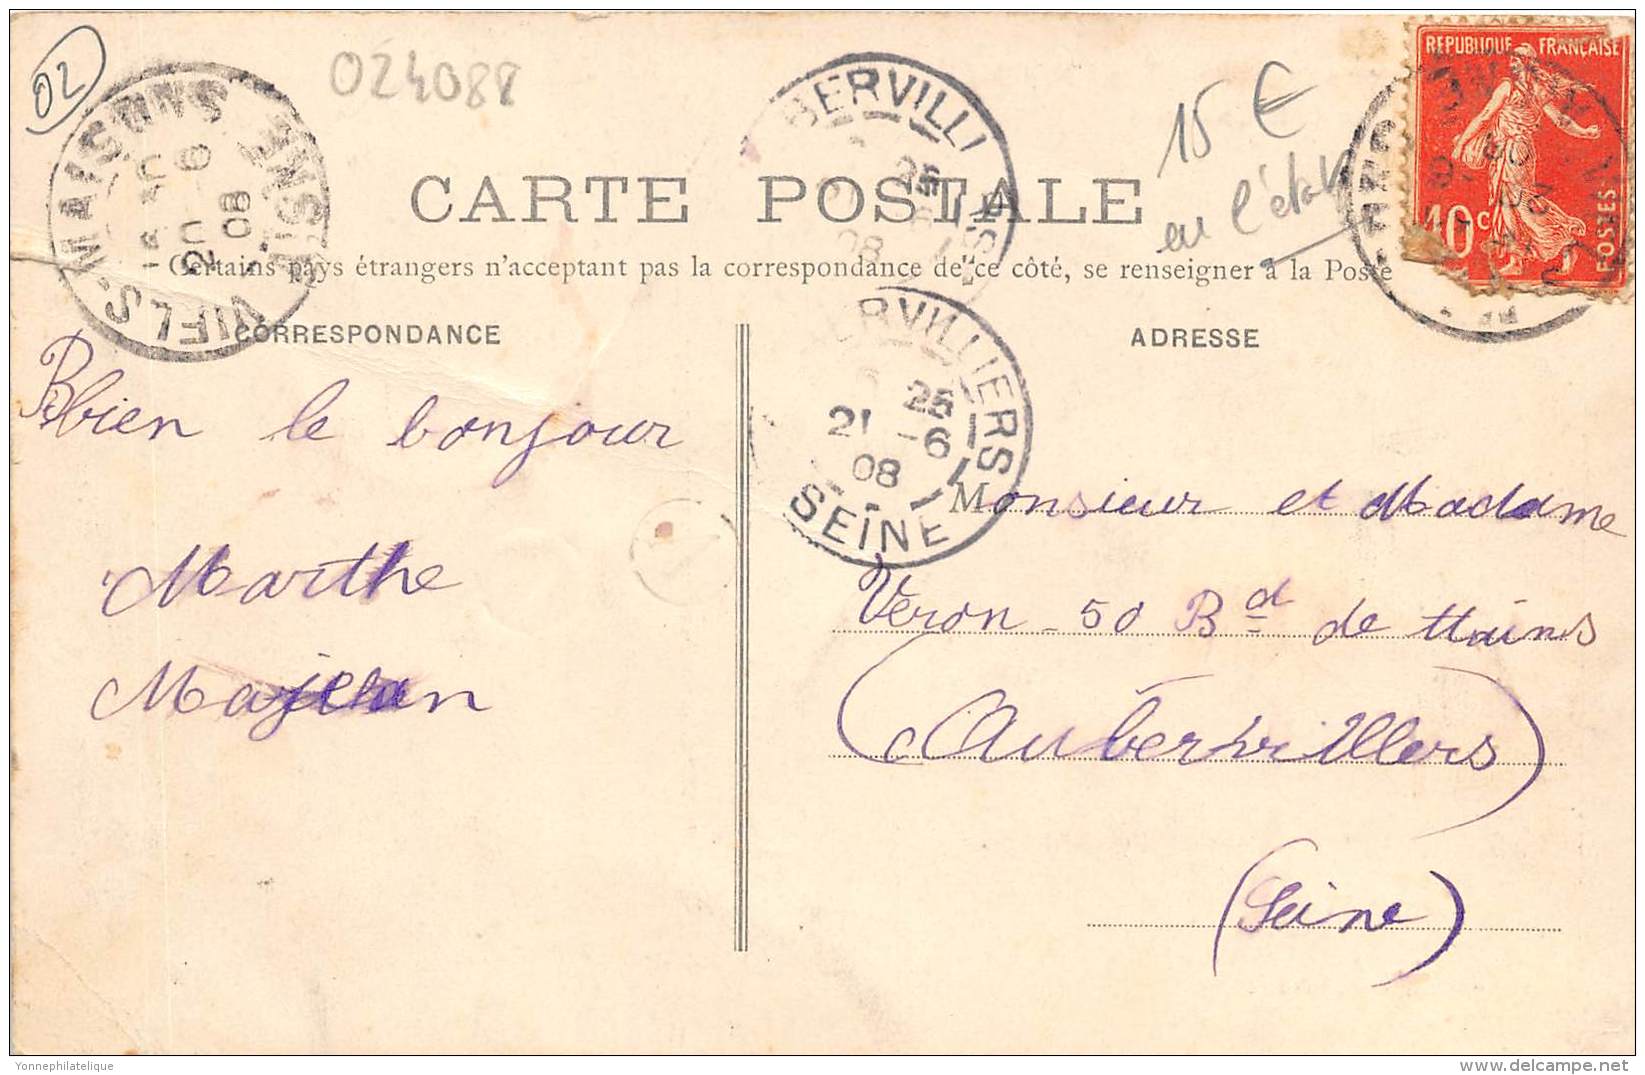 02
024088
15 €
en l'état
REPUBLIQUE FRANÇAISE
10c
POSTES
VIELS-MAISONS
AISNE
20 6
08
BERVILLI
25
6
08
CARTE POSTALE
Certains pays étrangers n'acceptant pas la correspondance de ce côté, se renseigner à la Poste
CORRESPONDANCE
ADRESSE
ERVILLIERS
25
21 -6
08
SEINE
Bbien le bonjour
Marthe
Monsieur et Madame
Véron - 50 Bd de
(Aubervillers)
(Seine)
Yonnephilatelique
delcampe.net